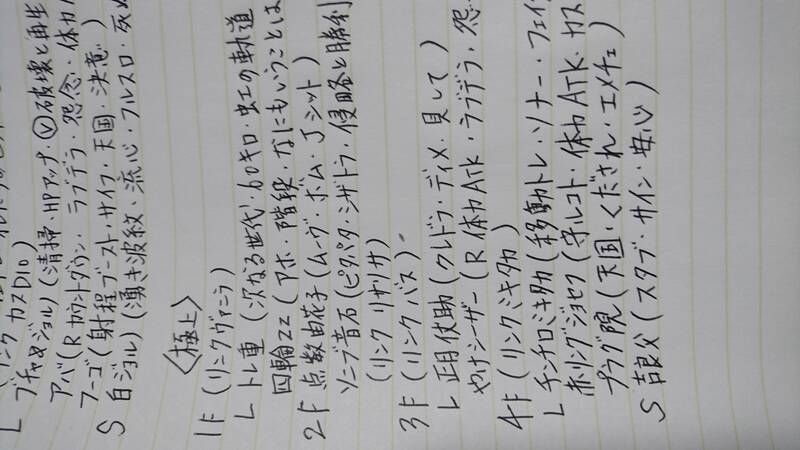 L リンク カスDIO)
ブチャ&ジョル)(清掃・HPアップ・Ⓥ破壊と再生
アバ(Rカウントダウン・ラブデラ・怨念・体力
フーゴ(射程ブースト・サイフ・天国・決意)
S 白ジョル)(湧き波紋・流心・フルスロ・死ぬ
<極上>
1F(リンクヴァニラ)
L トレ重(次なる世代・60キロ・虫工の軌道
四輪ZZ(アホ・階段・なにもいうことは
2F 点数由花子(ムーグ・ボム・Jシット)
ソニブ音石(ピタパタ・シザトラ・侵略と勝利
(リンク リサリサ)
3F(リンク バス)
L 正月仗助(クレドラ・ディメ・貝して)
やけシーザー(R体力ATK・ラブデラ・怨
4F(リンクミキタカ)
L チンチロミキタカ(移動トレ・ソナー・フェイ
赤リングジョセフ(守ルコト・体力ATK・カス
プラグ院(天国・くだされ・エメチェ)
S 吉良父(スタブ・サイン・安心)